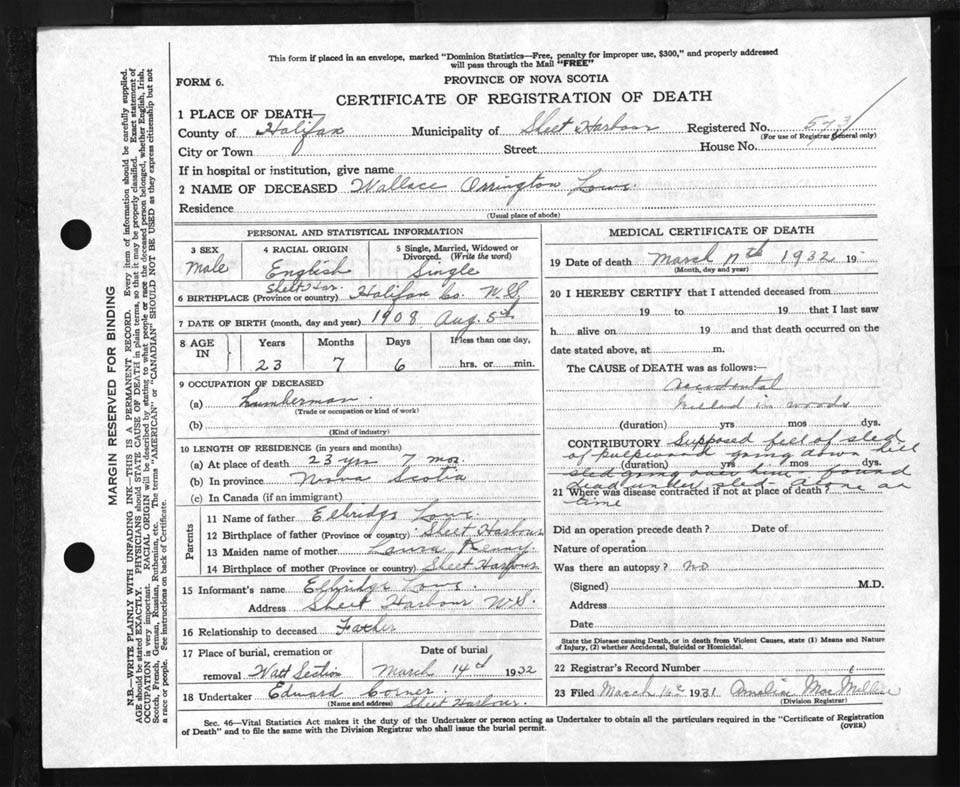 This form if placed in an envelope, marked "Dominion Statistics—Free, penalty for improper use, $300," and properly addressed
will pass through the Mail "FREE"
FORM 6.
PROVINCE OF NOVA SCOTIA
CERTIFICATE OF REGISTRATION OF DEATH
1 PLACE OF DEATH—
County of Halifax Municipality of Sheet Harbour Registered No. 573
(For use of Registrar General only)
City or Town Street House No.
If in hospital or institution, give name
2 NAME OF DECEASED Wallace Orrington Lowe.
Residence
(Usual place of abode)
PERSONAL AND STATISTICAL INFORMATION
3 SEX 4 RACIAL ORIGIN 5 Single, Married, Widowed or
Divorced. (Write the word)
Male English Single
Sheet Har.
6 BIRTHPLACE (Province or country) Halifax Co. N.S.
7 DATE OF BIRTH (month, day and year) 1908 Aug. 5th
8 AGE IN Years Months Days If less than one day,
23 7 6 hrs. or min.
9 OCCUPATION OF DECEASED
(a) Lumberman.
(Trade or occupation or kind of work)
(b)
(Kind of industry)
10 LENGTH OF RESIDENCE (in years and months)
(a) At place of death 23 yrs 7 mos.
(b) In province Nova Scotia
(c) In Canada (if an immigrant)
Parents
11 Name of father Elbridge Lowe.
12 Birthplace of father (Province or country) Sheet Harbour
13 Maiden name of mother Laura Kenny.
14 Birthplace of mother (Province or country) Sheet Harbour
15 Informant's name Elbridge Lowe.
Address Sheet Harbour N.S.
16 Relationship to deceased Father
17 Place of burial, cremation or removal Watt Section
Date of burial
March 14th 1932
18 Undertaker Edward Corner.
(Name and address) Sheet Harbour.
MEDICAL CERTIFICATE OF DEATH
19 Date of death March 11th 1932 19
(Month, day and year)
20 I HEREBY CERTIFY that I attended deceased from
19 to 19 that I last saw
h alive on 19 and that death occurred on the
date stated above, at m.
The CAUSE of DEATH was as follows:—
Accidental
killed in woods
(duration) yrs mos dys.
CONTRIBUTORY Supposed fell of sled
of pulpwood going down hill
(duration) yrs mos dys.
sled going over him - found
dead under sled. Alone at
21 Where was disease contracted if not at place of death?
time
Did an operation precede death? Date of
Nature of operation
Was there an autopsy? no
(Signed) M.D.
Address
Date
State the Disease causing Death, or in death from Violent Causes, state (1) Means and Nature
of Injury, (2) whether Accidental, Suicidal or Homicidal.
22 Registrar's Record Number
23 Filed March 1931 Amelia MacMillan
(Division Registrar)
Sec. 46—Vital Statistics Act makes it the duty of the Undertaker or person acting as Undertaker to obtain all the particulars required in the "Certificate of Registration
of Death" and to file the same with the Division Registrar who shall issue the burial permit.
(OVER)
MARGIN RESERVED FOR BINDING
N.B.—WRITE PLAINLY WITH UNFADING INK—THIS IS A PERMANENT RECORD. Every item of information should be carefully supplied.
AGE should be stated EXACTLY. PHYSICIANS should STATE CAUSE OF DEATH in plain terms, so that it may be properly classified. Exact statement of
OCCUPATION is very important. RACIAL ORIGIN will be described by stating to what people or race the deceased person belonged, whether English, Irish,
Scotch, French, German, Russian, Ruthenian, etc. The terms "AMERICAN" or "CANADIAN" SHOULD NOT BE USED as they express citizenship but not
a race or people. See instructions on back of Certificate.